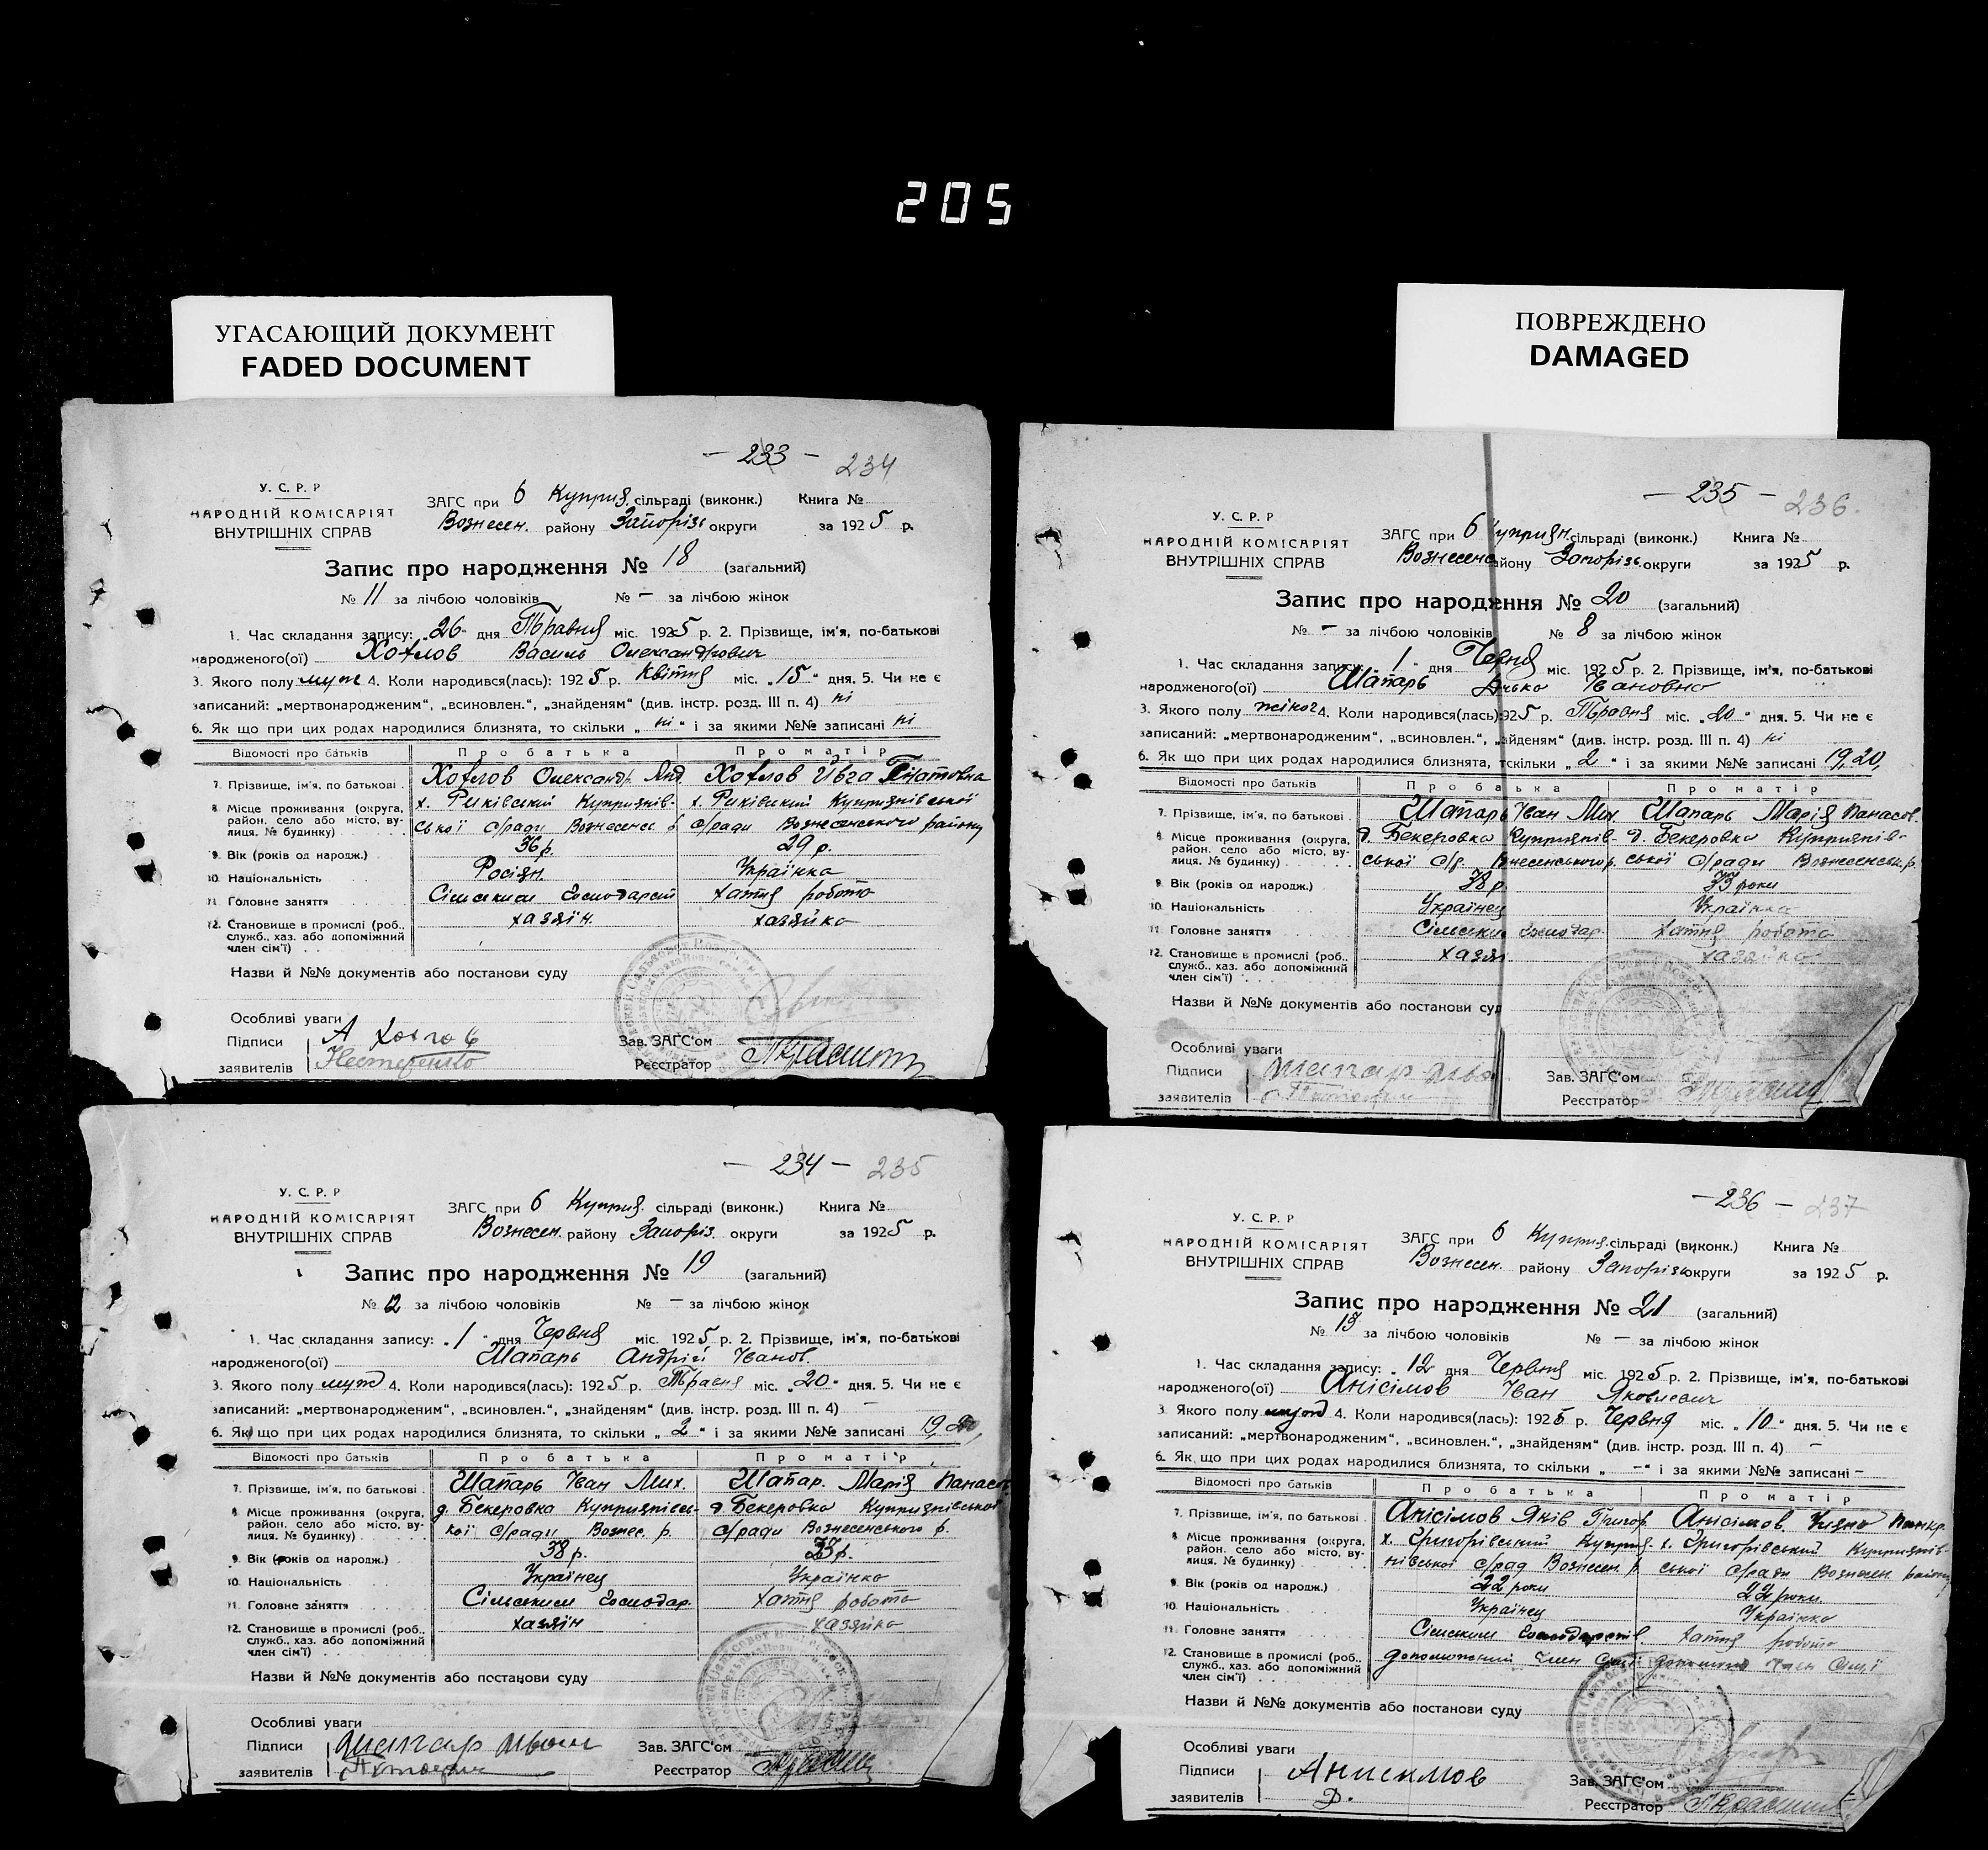 205
УГАСАЮЩИЙ ДОКУМЕНТ
FADED DOCUMENT
ПОВРЕЖДЕНО
DAMAGED
— 233 — 234
У. С. Р. Р
НАРОДНІЙ КОМІСАРІЯТ
ВНУТРІШНІХ СПРАВ
ЗАГС при 6 Куприя. сільраді (виконк.) Книга №
Вознесен. району Запорізь округи за 1925 р.
Запис про народження № 18 (загальний)
№ 11 за лічбою чоловіків № — за лічбою жінок
1. Час складання запису: „26“ дня Травня міс. 1925 р. 2. Прізвище, ім'я, по-батькові
народженого(ої) Хотлов Василь Олександрович
3. Якого полу муж 4. Коли народився(лась): 1925 р. Квітня міс. „15“ дня. 5. Чи не є
записаний: „мертвонародженим“, „всиновлен.“, „знайденям“ (див. інстр. розд. III п. 4) ні
6. Як що при цих родах народилися близнята, то скільки „ні“ і за якими №№ записані ні
Відомості про батьків Про батька Про матір
7. Прізвище, ім'я, по батькові Хотлов Олександр. Янд Хотлов Ивга Гнатовна
8. Місце проживання (округа, х. Риківський Куприянів- х. Риківський Куприянівської
район, село або місто, ву- ської с/ради Вознесенс с/ради Вознесенського району
лиця, № будинку)
9. Вік (років од народж.) 36 р. 29 р.
10. Національність Росіян. Українка
11. Головне заняття Сільським Господарств хатня робота
12. Становище в промислі (роб., хазяїн. хазяйка
служб., хаз. або допоміжний
член сім'ї)
Назви й №№ документів або постанови суду
Особливі уваги
Підписи А Хотлов Зав. ЗАГС'ом
заявителів Нестеренко Реєстратор
— 235 — 236.
У. С. Р. Р
НАРОДНІЙ КОМІСАРІЯТ
ВНУТРІШНІХ СПРАВ
ЗАГС при 6 Куприян. сільраді (виконк.) Книга №
Вознесенс айону Запорізь. округи за 1925 р.
Запис про народження № 20 (загальний)
№ — за лічбою чоловіків № 8 за лічбою жінок
1. Час складання запису: „1“ дня Червня міс. 1925 р. 2. Прізвище, ім'я, по-батькові
народженого(ої) Шапарь Ивановна
3. Якого полу жіноч 4. Коли народився(лась): 925 р. Травня міс. „20“ дня. 5. Чи не є
записаний: „мертвонародженим“, „всиновлен.“, „знайденям“ (див. інстр. розд. III п. 4) ні
6. Як що при цих родах народилися близнята, т скільки „2“ і за якими №№ записані 19,20,
Відомості про батьків Про батька Про матір
7. Прізвище, ім'я, по батькові Шапарь Іван Мих. Шапарь Марія Панасов.
8. Місце проживання (округа, д. Бекеровка Куприянів- д. Бекеровка Куприянів-
район, село або місто, ву- ської с/р. Внесенського р. ської с/ради Вознесенськ. р.
лиця, № будинку)
9. Вік (років од народж.) 38 р. 33 роки
10. Національність Українец Українка
11. Головне заняття Сільськи Господар. хатня робота
12. Становище в промислі (роб., хазяї. хазяйка
служб., хаз. або допоміжний
член сім'ї)
Назви й №№ документів або постанови суд
Особливі уваги
Підписи Шапар Зав. ЗАГС'ом
заявителів Реєстратор
— 234 — 235
У. С. Р. Р
НАРОДНІЙ КОМІСАРІЯТ
ВНУТРІШНІХ СПРАВ
ЗАГС при 6 Куприя. сільраді (виконк.) Книга №
Вознесен. району Запоріз. округи за 1925 р.
Запис про народження № 19 (загальний)
№ 12 за лічбою чоловіків № — за лічбою жінок
1. Час складання запису: „1“ дня Червня міс. 1925 р. 2. Прізвище, ім'я, по-батькові
народженого(ої) Шапарь Андрій Іванов.
3. Якого полу муж 4. Коли народився(лась): 1925 р. Травня міс. „20“ дня. 5. Чи не є
записаний: „мертвонародженим“, „всиновлен.“, „знайденям“ (див. інстр. розд. III п. 4) —
6. Як що при цих родах народилися близнята, то скільки „2“ і за якими №№ записані 19, 20,
Відомості про батьків Про батька Про матір
7. Прізвище, ім'я, по батькові Шапарь Іван Мих. Шапар. Марія Панасов
8. Місце проживання (округа, д. Бекеровка Куприянівсь- д. Бекеровка Куприянівської
район, село або місто, ву- кої с/ради Вознес. р. с/ради Вознесенського р.
лиця, № будинку)
9. Вік (років од народж.) 38 р. 33 р.
10. Національність Українец Українка
11. Головне заняття Сільським Господар. хатня робота
12. Становище в промислі (роб., хазяїн хазяйка
служб., хаз. або допоміжний
член сім'ї)
Назви й №№ документів або постанови суду
Особливі уваги
Підписи Шапар Иван Зав. ЗАГС'ом
заявителів Реєстратор
— 236 — 237
У. С. Р. Р
НАРОДНІЙ КОМІСАРІЯТ
ВНУТРІШНІХ СПРАВ
ЗАГС при 6 Куприя. сільраді (виконк.) Книга №
Вознесен. району Запорізь округи за 1925 р.
Запис про народження № 21 (загальний)
№ 13 за лічбою чоловіків № — за лічбою жінок
1. Час складання запису: „12“ дня Червня міс. 1925 р. 2. Прізвище, ім'я, по-батькові
народженого(ої) Анісімов Іван Яковлевич
3. Якого полу муж 4. Коли народився(лась): 1925 р. Червня міс. „10“ дня. 5. Чи не є
записаний: „мертвонародженим“, „всиновлен.“, „знайденям“ (див. інстр. розд. III п. 4) —
6. Як що при цих родах народилися близнята, то скільки „—“ і за якими №№ записані —
Відомості про батьків Про батька Про матір
7. Прізвище, ім'я, по батькові Анісімов Яків Григор. Анісімов Панкр.
8. Місце проживання (округа, х. Григорівський Куприя- х. Григорівський Куприянів-
район, село або місто, ву- нівської с/рад Вознесен. р ської с/ради Вознесен. району
лиця, № будинку)
9. Вік (років од народж.) 22 роки 22 роки.
10. Національність Українец Українка
11. Головне заняття Сільським Господарств. хатня робота
12. Становище в промислі (роб., допоможний член Сім'ї допоможн член Сім'ї
служб., хаз. або допоміжний
член сім'ї)
Назви й №№ документів або постанови суду
Особливі уваги
Підписи Анисимов Зав. ЗАГС'ом
заявителів Реєстратор